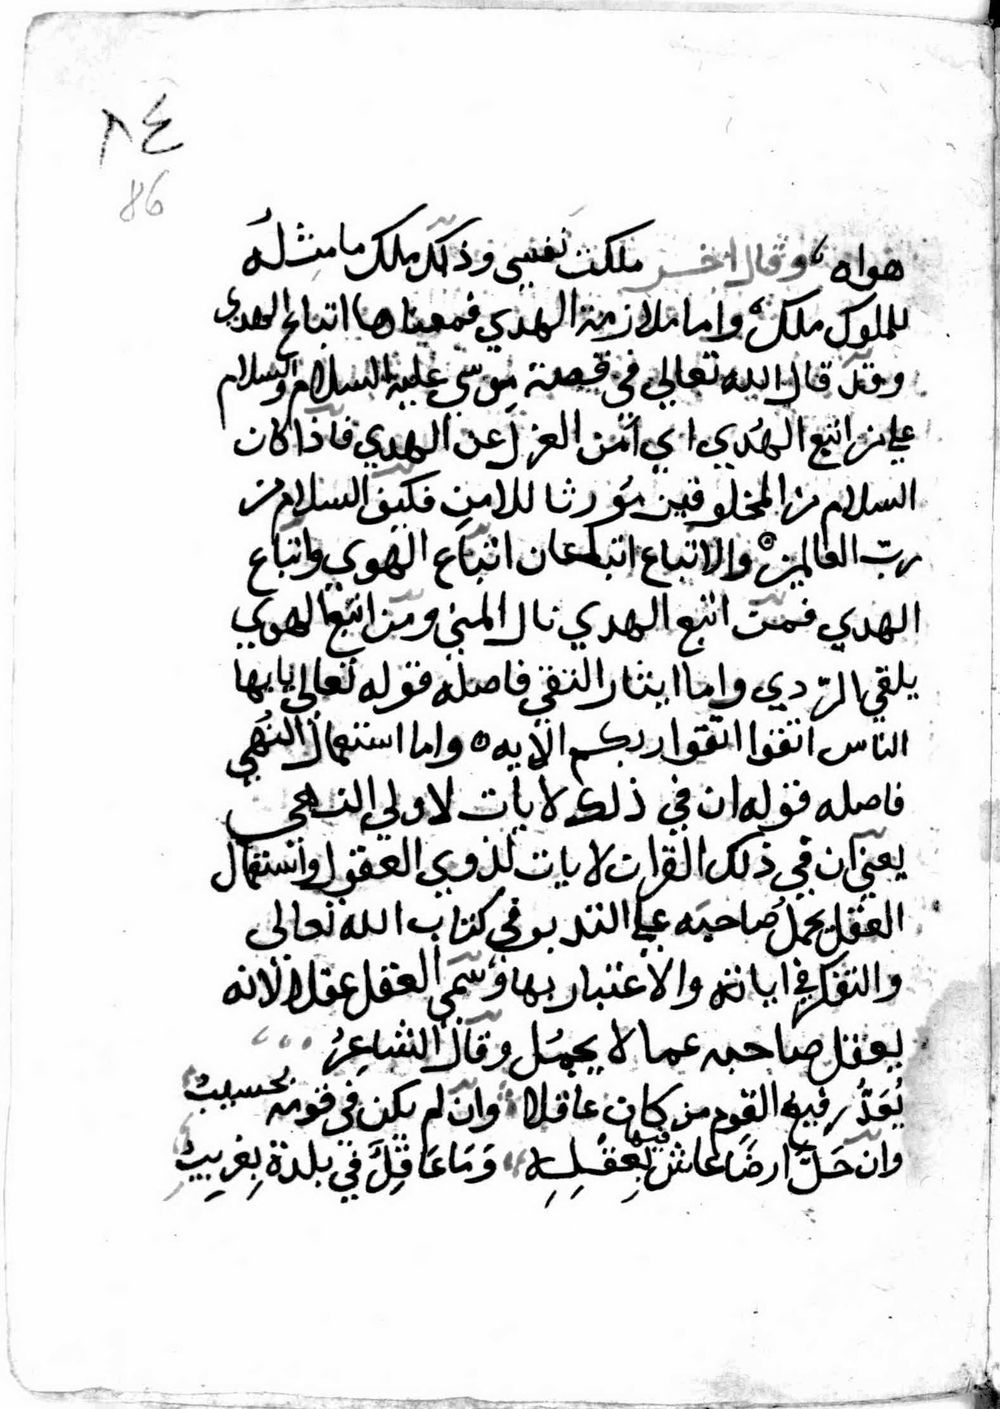 ٨٤
86
هواه وقال اخر ملكت نفسي وذلك ملك ما مثله
للملوك ملك واما ملازمة الهدي فمعناها اتباع الهدي
وقد قال الله تعالي في قصة موسي عليه السلام والسلام
علي من اتبع الهُدي اي امن العزل عن الهدي فاذا كان
السلام من المخلوقين مُورثا للامن فكيف السلام من
ربّ العالمين والاتباع اتباعان اتباع الهوي واتباع
الهدي فمن اتبع الهدي نال المني ومن اتبع الهوي
يلقي الرّدي واما ايثار التقي فاصله قوله تعالي يايها
الناس اتقوا اتقوا ربكم الايه واما استعمال النُهي
فاصله قوله ان في ذلك لايات لاولي النهي
يعني ان في ذلك القران لايات لذوي العقول واستعمال
العقل يحمل صاحبَه علي التدبر في كتاب الله تعالي
والتفكر في اياته والاعتبار بها وسَمي العقل عقلا لانه
يعقل صاحبه عما لا يجمُل وقال الشاعِرُ
يُعَدُّ رفيع القوم من كان عاقلا وان لم يكن في قومه بحسيب
وان حَلَّ ارضًا عاش فيها بِعقلِهِ وَمَا عَاقِلٌ في بلدة بِغريبِ